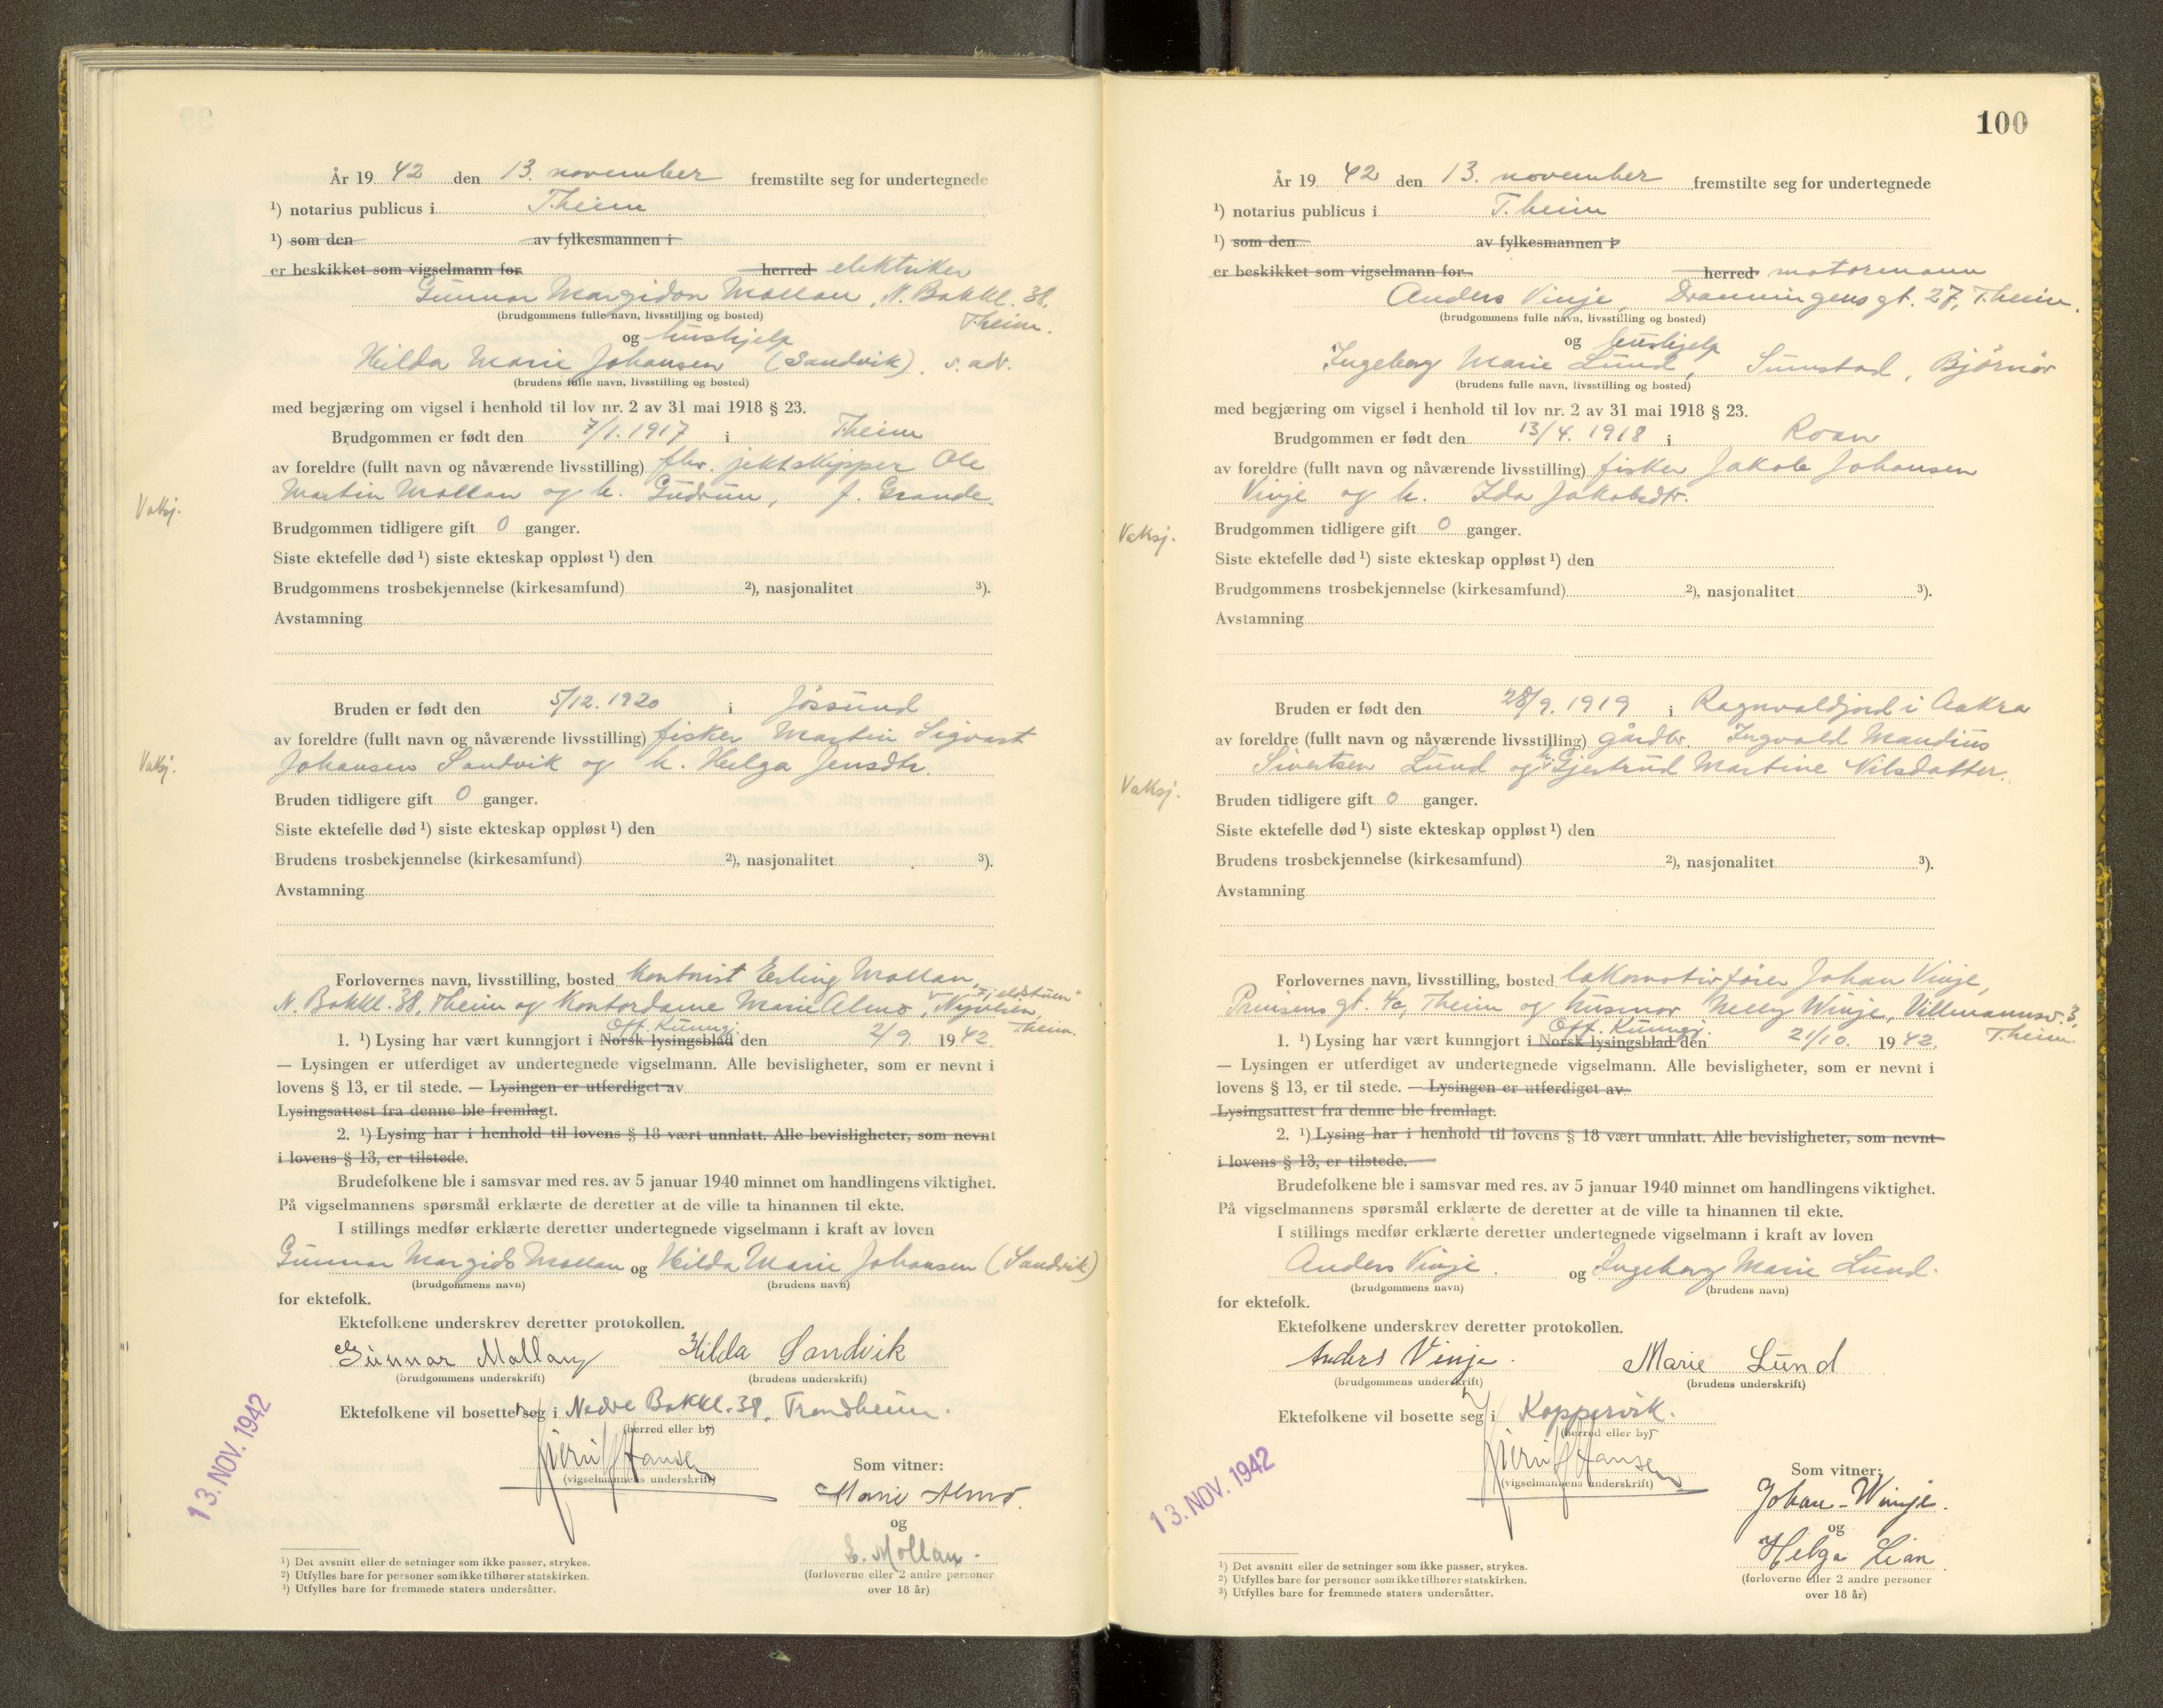 År 19 42 den 13. november fremstilte seg for undertegnede
¹) notarius publicus i T.heim
¹) som den av fylkesmannen i
er beskikket som vigselmann for herred elektriker
Gunnar Margidon Mollan, N. Bakkl. 38,
(brudgommens fulle navn, livsstilling og bosted) T.heim.
og hushjelp
Hilda Marie Johansen (Sandvik). s. adr.
(brudens fulle navn, livsstilling og bosted)
med begjæring om vigsel i henhold til lov nr. 2 av 31 mai 1918 § 23.
Brudgommen er født den 7/1. 1917 i T.heim
av foreldre (fullt navn og nåværende livsstilling) fhv. jektskipper Ole
Martin Mollan og h. Gudrun, f. Grande
Vaksj.
Brudgommen tidligere gift 0 ganger.
Siste ektefelle død ¹) siste ekteskap oppløst ¹) den
Brudgommens trosbekjennelse (kirkesamfund) ²), nasjonalitet ³).
Avstamning
Bruden er født den 5/12. 1920 i Jøssund
av foreldre (fullt navn og nåværende livsstilling) fisker Martin Sigvart
Johansen Sandvik og h. Helga Jensdtr.
Vaksj.
Bruden tidligere gift 0 ganger.
Siste ektefelle død ¹) siste ekteskap oppløst ¹) den
Brudens trosbekjennelse (kirkesamfund) ²), nasjonalitet ³).
Avstamning
Forlovernes navn, livsstilling, bosted Kontorist Erling Mollan,
N. Bakkl. 38, T.heim og Kontordame Marie Almo, "Fjeldstuen" T.heim.
Off. Kunngj.
1. ¹) Lysing har vært kunngjort i Norsk lysingsblad den 2/9. 19 42
— Lysingen er utferdiget av undertegnede vigselmann. Alle bevisligheter, som er nevnt i
lovens § 13, er til stede. — Lysingen er utferdiget av
Lysingsattest fra denne ble fremlagt.
2. ¹) Lysing har i henhold til lovens § 18 vært unnlatt. Alle bevisligheter, som nevnt
i lovens § 13, er tilstede.
Brudefolkene ble i samsvar med res. av 5 januar 1940 minnet om handlingens viktighet.
På vigselmannens spørsmål erklærte de deretter at de ville ta hinannen til ekte.
I stillings medfør erklærte deretter undertegnede vigselmann i kraft av loven
Gunnar Margido Mollan og Hilda Marie Johansen (Sandvik)
(brudgommens navn) (brudens navn)
for ektefolk.
Ektefolkene underskrev deretter protokollen.
Gunnar Mollan Hilda Sandvik
(brudgommens underskrift) (brudens underskrift)
Ektefolkene vil bosette seg i Nedre Bakkl. 38, Trondheim.
(herred eller by)
Hansen
(vigselmannens underskrift)
13. NOV. 1942
Som vitner:
Marie Almo.
og
E. Mollan.
(forloverne eller 2 andre personer
over 18 år)
¹) Det avsnitt eller de setninger som ikke passer, strykes.
²) Utfylles bare for personer som ikke tilhører statskirken.
³) Utfylles bare for fremmede staters undersåtter.
100
År 19 42 den 13. november fremstilte seg for undertegnede
¹) notarius publicus i T.heim
¹) som den av fylkesmannen i
er beskikket som vigselmann for herred motormann
Anders Vinje, Dronningensgt. 27, T.heim.
(brudgommens fulle navn, livsstilling og bosted)
og hushjelp
Ingeborg Marie Lund, Sumstad, Bjørnør
(brudens fulle navn, livsstilling og bosted)
med begjæring om vigsel i henhold til lov nr. 2 av 31 mai 1918 § 23.
Brudgommen er født den 13/4. 1918 i Roan
av foreldre (fullt navn og nåværende livsstilling) fisker Jakob Johansen
Vinje og h. Ida Jakobsdtr.
Vaksj.
Brudgommen tidligere gift 0 ganger.
Siste ektefelle død ¹) siste ekteskap oppløst ¹) den
Brudgommens trosbekjennelse (kirkesamfund) ²), nasjonalitet ³).
Avstamning
Bruden er født den 28/9. 1919 i Ragnvaldjord i Aakra
av foreldre (fullt navn og nåværende livsstilling) gårdbr. Ingvald Mandius
Sivertsen Lund og h. Gjertrud Martine Nilsdatter.
Vaksj.
Bruden tidligere gift 0 ganger.
Siste ektefelle død ¹) siste ekteskap oppløst ¹) den
Brudens trosbekjennelse (kirkesamfund) ²), nasjonalitet ³).
Avstamning
Forlovernes navn, livsstilling, bosted lokomotivfører Johan Vinje,
Prinsens gt. 4c, T.heim og husmor Nelly Winje, Villmannsv. 3, T.heim.
Off. Kunngj.
1. ¹) Lysing har vært kunngjort i Norsk lysingsblad den 21/10. 19 42.
— Lysingen er utferdiget av undertegnede vigselmann. Alle bevisligheter, som er nevnt i
lovens § 13, er til stede. — Lysingen er utferdiget av
Lysingsattest fra denne ble fremlagt.
2. ¹) Lysing har i henhold til lovens § 18 vært unnlatt. Alle bevisligheter, som nevnt
i lovens § 13, er tilstede.
Brudefolkene ble i samsvar med res. av 5 januar 1940 minnet om handlingens viktighet.
På vigselmannens spørsmål erklærte de deretter at de ville ta hinannen til ekte.
I stillings medfør erklærte deretter undertegnede vigselmann i kraft av loven
Anders Vinje. og Ingeborg Marie Lund.
(brudgommens navn) (brudens navn)
for ektefolk.
Ektefolkene underskrev deretter protokollen.
Anders Vinje. Marie Lund
(brudgommens underskrift) (brudens underskrift)
Ektefolkene vil bosette seg i Koppervik.
(herred eller by)
Hansen
(vigselmannens underskrift)
13. NOV. 1942
Som vitner:
Johan Winje.
og
Helga Lian
(forloverne eller 2 andre personer
over 18 år)
¹) Det avsnitt eller de setninger som ikke passer, strykes.
²) Utfylles bare for personer som ikke tilhører statskirken.
³) Utfylles bare for fremmede staters undersåtter.